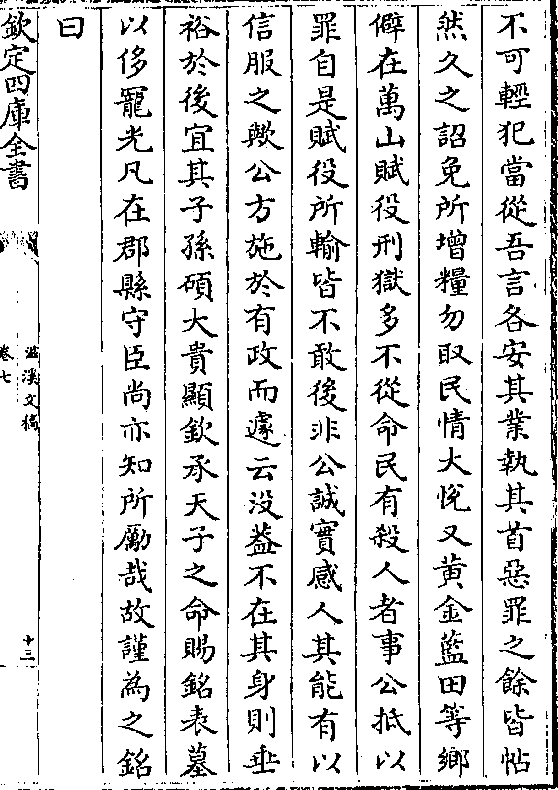 不可輕犯當從吾言各安其業執其首惡罪之餘皆帖
然久之詔免所增糧勿取民情大悅又黄金藍田等鄉
僻在萬山賦役刑獄多不從命民有殺人者事公抵以
罪自是賦役所輸皆不敢後非公誠實感人其能有以
信服之歟公方施於有政而遽云没葢不在其身則垂
裕於後宜其子孫碩大貴顯欽承天子之命賜銘表墓
以侈寵光凡在郡縣守臣尚亦知所勵哉故謹為之銘
曰
欽定四庫全書
滋溪文稿
卷七
十三